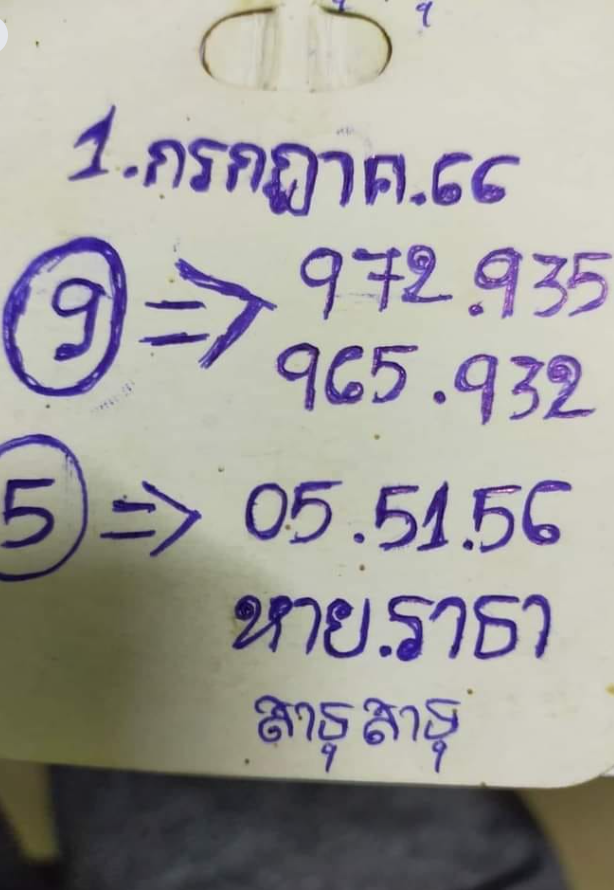 1.กรกฎาค.66
9 => 972.935
965.932
5 => 05.51.56
หาย.ราธา
สาธุสาธุ